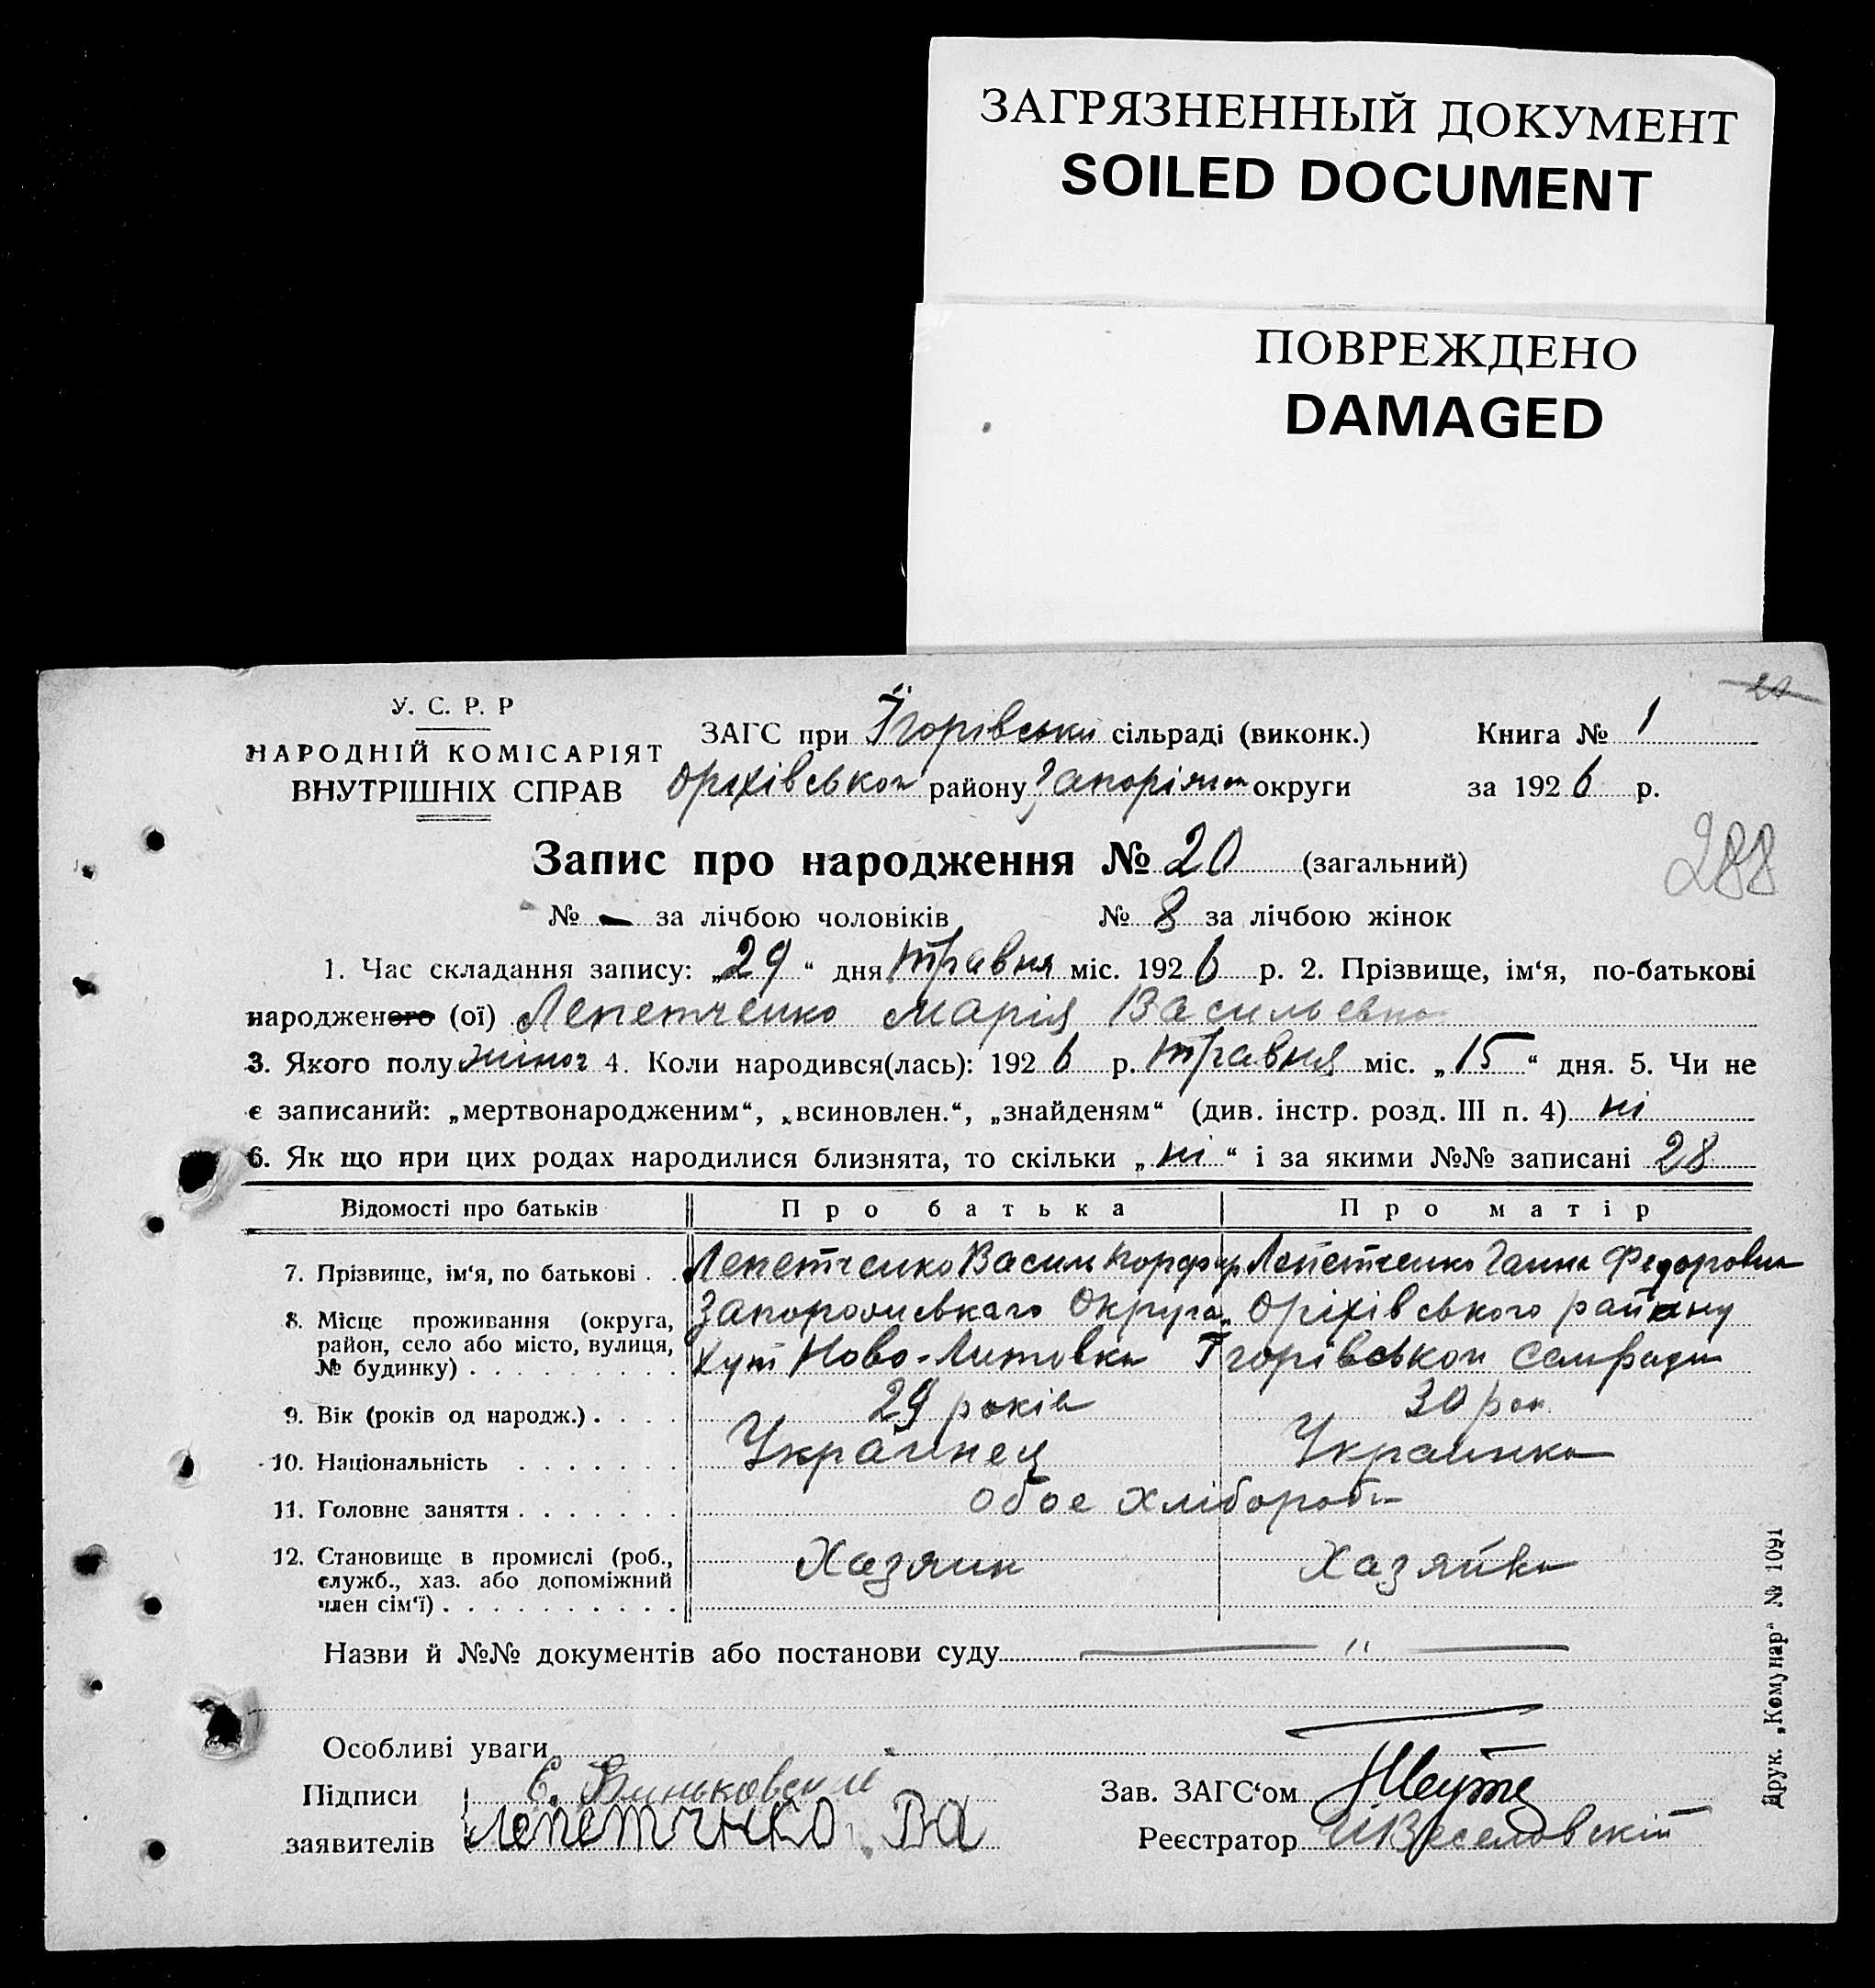 ЗАГРЯЗНЕННЫЙ ДОКУМЕНТ
SOILED DOCUMENT
ПОВРЕЖДЕНО
DAMAGED
У. С. Р. Р
НАРОДНІЙ КОМІСАРІЯТ
ВНУТРІШНІХ СПРАВ
ЗАГС при Їгорівській сільраді (виконк.) Книга № 1
Оріхівської району Запоріжж округи за 1926 р.
288
Запис про народження № 20 (загальний)
№ – за лічбою чоловіків № 8 за лічбою жінок
1. Час складання запису: „29“ дня травня міс. 1926 р. 2. Прізвище, ім‘я, по-батькові
народженого (ої) Лепетченко Марія Васильевна
3. Якого полу жіноч 4. Коли народився(лась): 1926 р. травня міс. „15“ дня. 5. Чи не
є записаний: „мертвонародженим“, „всиновлен.“, „знайденям“ (див. інстр. розд. III п. 4) ні
6. Як що при цих родах народилися близнята, то скільки „ні“ і за якими №№ записані 28
Відомості про батьків Про батька Про матір
7. Прізвище, ім‘я, по батькові . . Лепетченко Васил Порфир Лепетченко Ганна Федоровна
8. Місце проживання (округа, Запорожськаго Округа, Оріхівського району
район, село або місто, вулиця, Хут Ново-Литовка Їгорівськой
№ будинку) . . . . . . . . .
9. Вік (років од народж.) . . . . 29 років 30 рок
10. Національність . . . . . . . Украинец Украинка
11. Головне заняття . . . . . . . обое хлібороби
12. Становище в промислі (роб., Хазяин Хазяйка
служб., хаз. або допоміжний
член сім‘ї) . . . . . . . . . .
Назви й №№ документів або постанови суду — " —
Особливі уваги
Підписи Зав. ЗАГС‘ом
заявителів Лепетчнко Ва Реєстратор Веселовскій
Друк. „Комунар“ № 1091